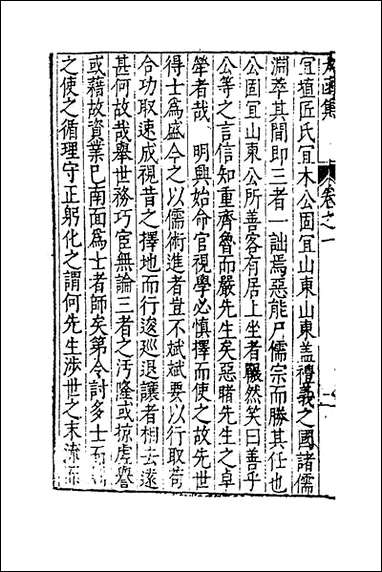 宜殖匠氏宜木公固宜山東山東蓋禮義之國諸儒
淵萃其間即三者一詘焉惡能尸儒宗而勝其任也
公固宜山東公所善客有居上坐者囅然笑曰善乎
公等之言信知重齊魯而嚴先生矣惡睹先生之卓
犖者哉　明興始命官視學必慎擇而使之故先世
得士爲盛今之以儒術進者豈不斌斌要以行取苟
合功取速成視昔之擇地而行逡巡退讓者相去遠
甚何故哉舉世務巧宦無論三者之汚隆或掠虛譽
或藉故資業已南面爲士者師矣第令討多士而
之使之循理守正躬化之謂何先生涉世之末流
集
卷之一